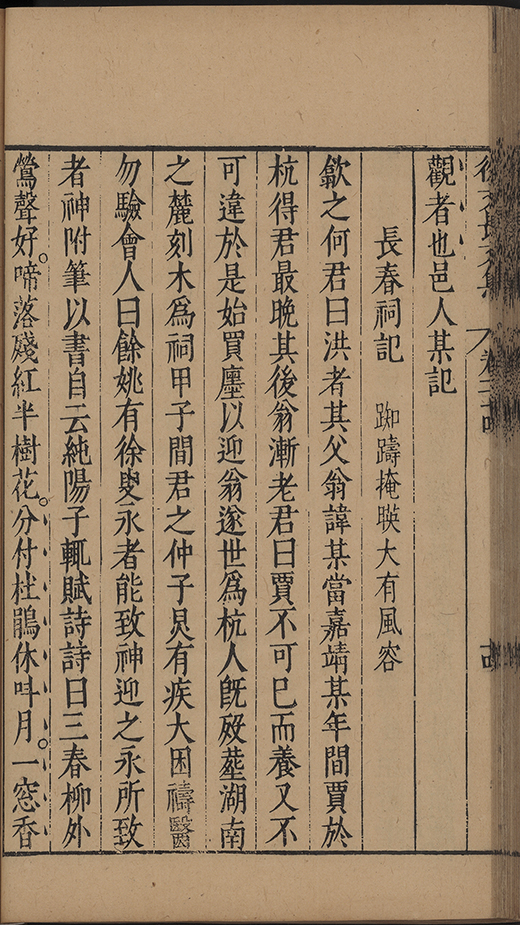 徐文長文集 卷二十四
觀者也邑人某記
長春祠記 踟躊掩暎大有風容
歙之何君曰洪者其父翁諱某當嘉靖某年間賈於
杭得君最晚其後翁漸老君曰賈不可已而養又不
可違於是始買廛以迎翁遂世爲杭人旣歿塟湖南
之麓刻木爲祠甲子間君之仲子炅有疾大困禱毉
勿驗會人曰餘姚有徐叟永者能致神迎之永所致
者神附筆以書自云純陽子輒賦詩詩曰三春柳外
鶯聲好。啼落殘紅半樹花。分付杜鵑休呌月。一窓香